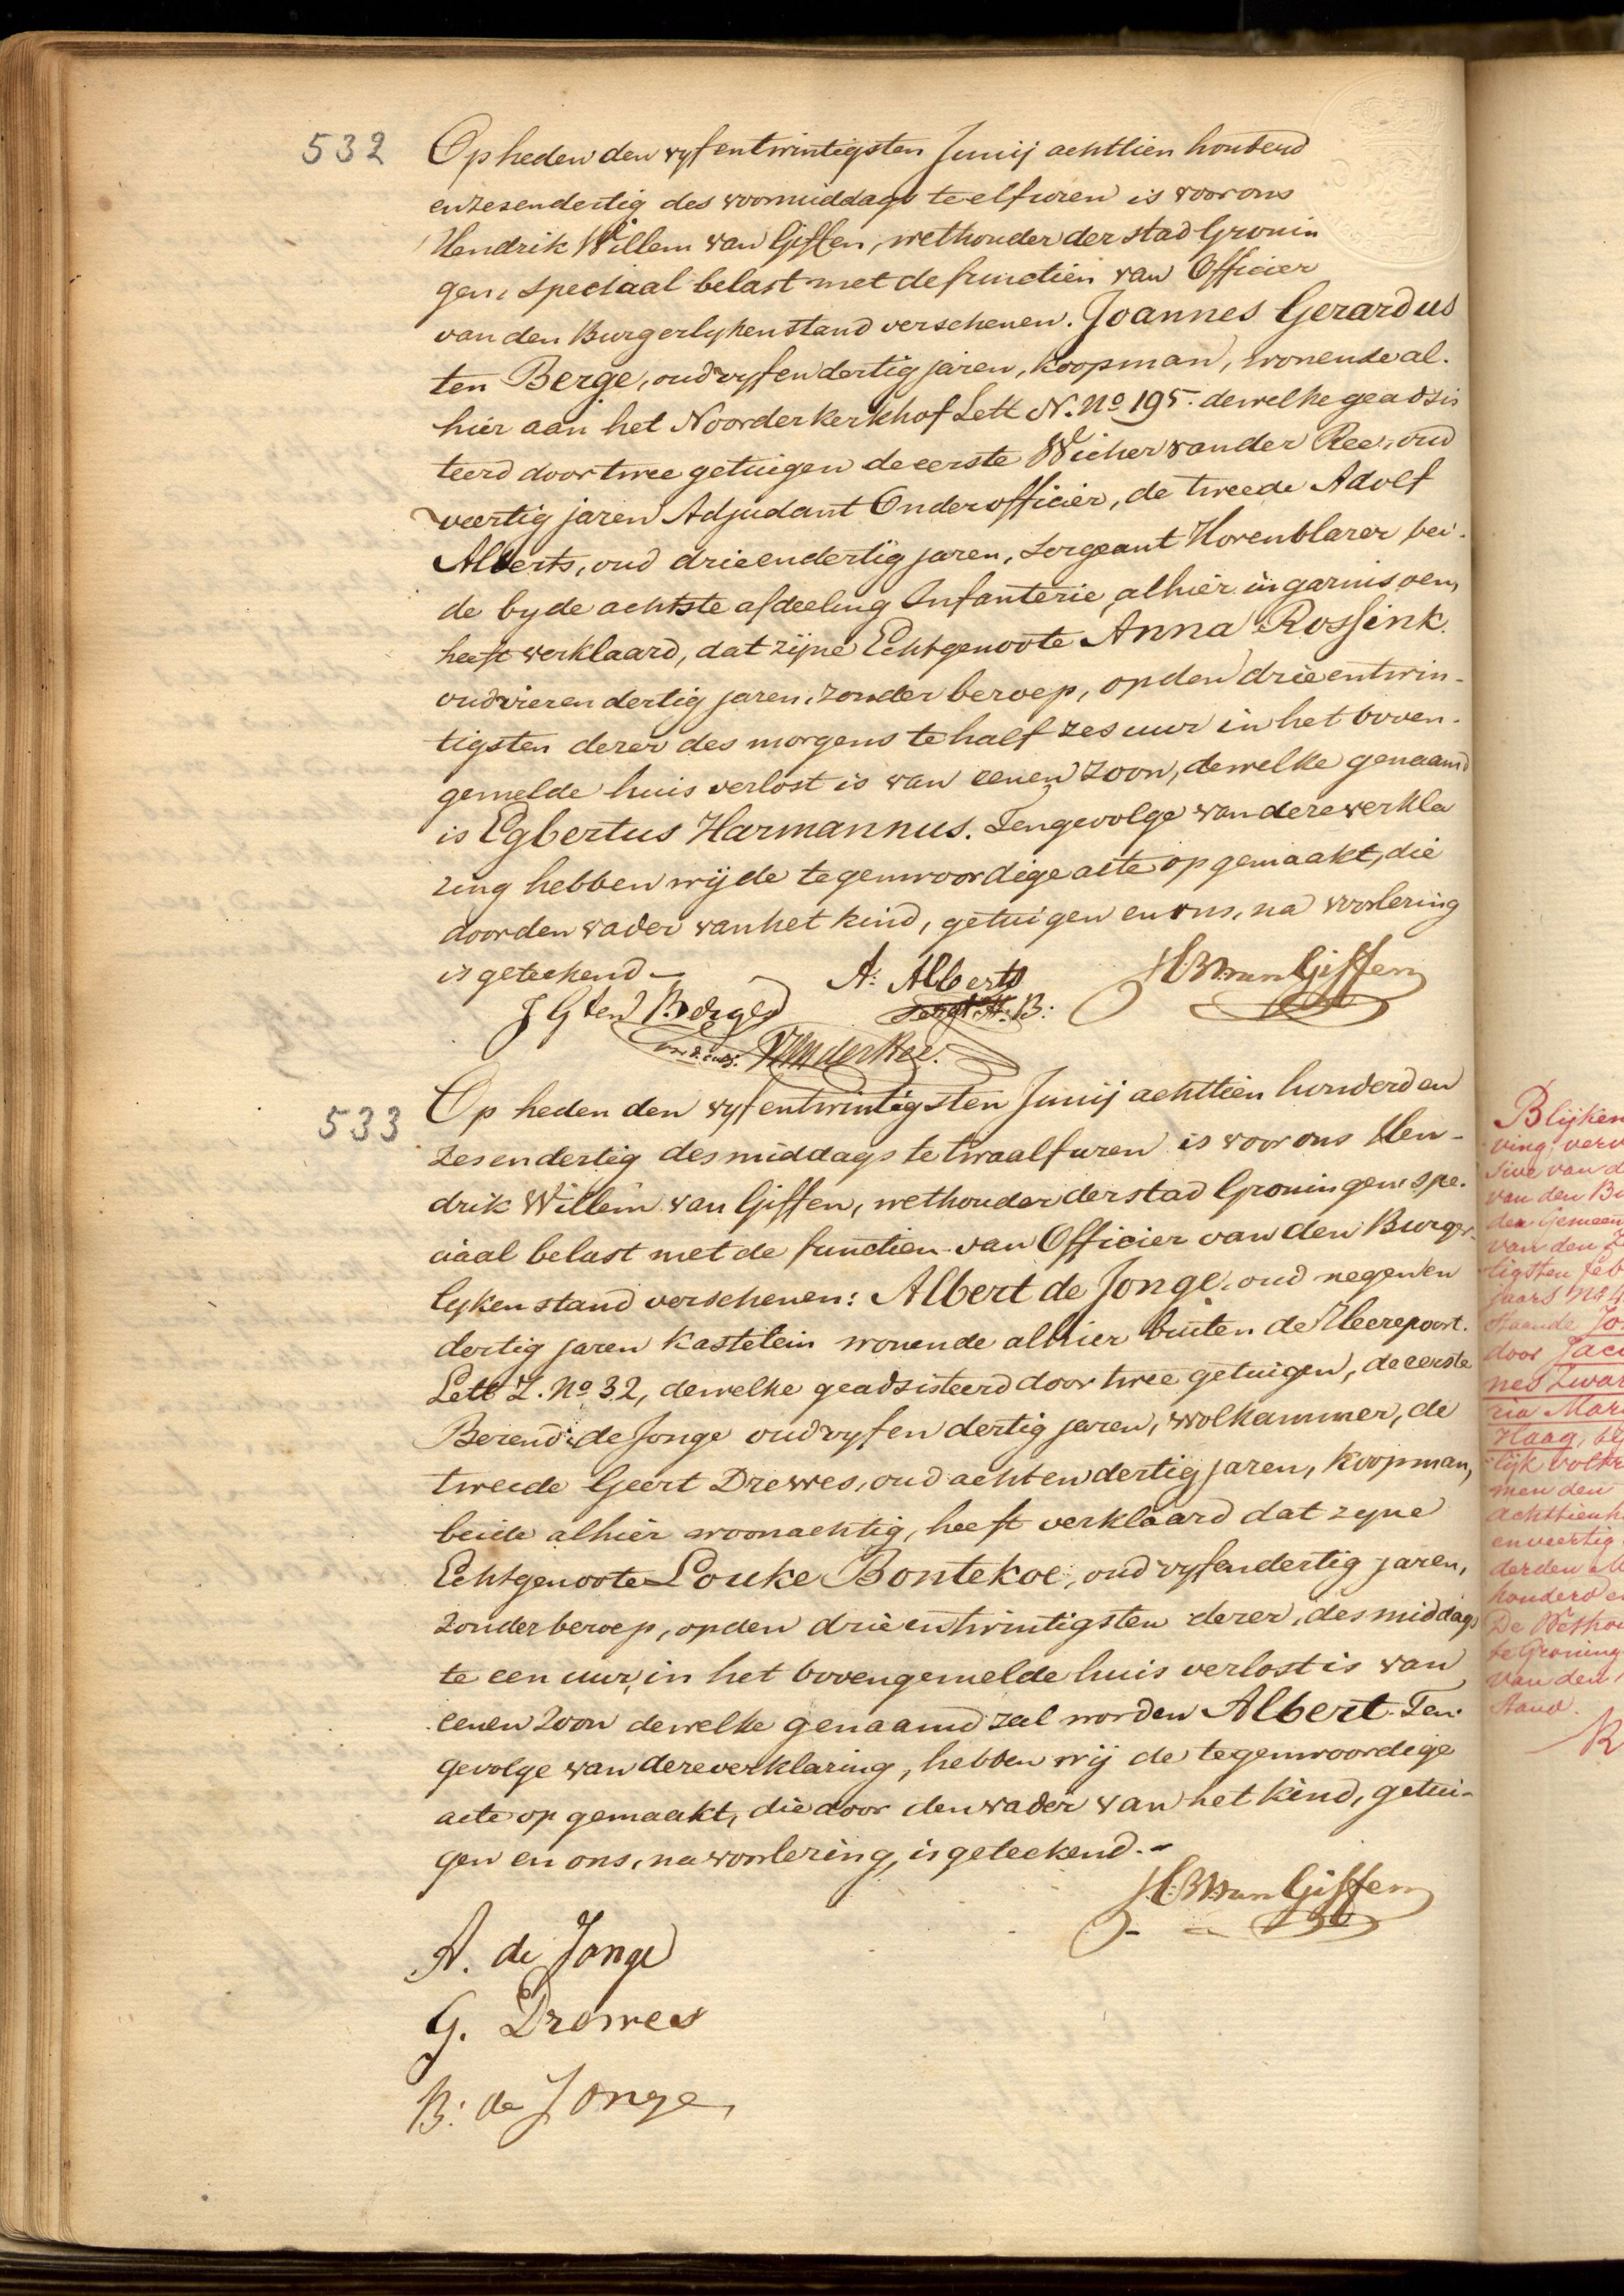 532
Op heden den vyfentwintigsten Junij achttien honderd
enzesendertig des voormiddags te elf uren is voor ons
Hendrik Willem van Giffen, wethouder der stad Gronin
gen, speciaal belast met de functiën van Officier
van den Burgerlyken stand verschenen. Joannes Gerardus
ten Berge, oud vyfendertig jaren, koopman, wonende al-
hier aan het Noorderkerkhof Lett N. No 195. dewelke geadsis
teerd door twee getuigen de eerste Wicher van der Ree, oud
veertig jaren Adjudant Onderofficier, de tweede Adolf
Alberts, oud drieendertig jaren, Sergeant Horenblazer bei-
de by de achtste afdeeling Infanterie, alhier in garnisoen,
heeft verklaard, dat zijne Echtgenoote Anna Rossink.
oud vierendertig jaren, zonder beroep, op den drieentwin-
tigsten dezer des morgens te half zes uur in het boven-
gemelde huis verlost is van eenen Zoon, dewelke genaamd
is Egbertus Harmannus. Tengevolge van deze verkla
ring hebben wij de tegenwoordige acte opgemaakt, die
door den vader van het kind, getuigen en ons, na voorlezing
is geteekend —
A. Alberts
HW van Giffen
J G ten Berge
Sergt H. B:
van der Ree.
533
Op heden den vyfentwintigsten Junij achttien honderd en
zesendertig des middags te twaalf uren is voor ons Hen-
drik Willem van Giffen, wethouder der stad Groningen, spe-
ciaal belast met de functien van Officier van den Burger-
lyken stand verschenen: Albert de Jonge, oud negenen
dertig jaren kastelein wonende alhier buiten de Heerepoort.
Lett Z. No 32, dewelke geadsisteerd door twee getuigen, de eerste
Berend de Jonge oud vyfendertig jaren, wolkammer, de
tweede Geert Drewes, oud achtendertig jaren, koopman,
beide alhier woonachtig, heeft verklaard dat zyne
Echtgenoote Louke Bontekoe, oud vyfendertig jaren,
zonder beroep, op den drieentwintigsten dezer, des middags
te een uur, in het bovengemelde huis verlost is van
eenen Zoon dewelke genaamd zal worden Albert. Ten
gevolge van deze verklaring, hebben wij de tegenwoordige
acte opgemaakt, die door den vader van het kind, getui-
gen en ons, na voorlezing, is geteekend. -
HW van Giffen
A. de Jonge
G. Drewes
B: de Jonge,
Blijken
ving, verv
sive van d
van den Bu
der Gemeen
van den
tigsten feb
jaars No 4
staande Jo
door Jac
nes Zwar
ria Mar
Haag, be
lijk volk
men den
achttienh
enveertig
derden M
honderd en
De Wethou
te Groning
van den
stand.